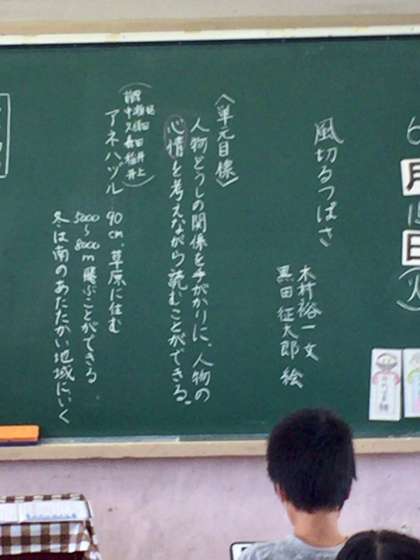 6月15日(火)
風切るつばさ
木村裕一 文
黒田征太郎 絵
〈単元目標〉
人物どうしの関係を手がかりに、人物の
心情を考えながら読むことができる。
アネハヅル
90cm、草原に住む
5000〜8000m 飛ぶことができる
冬は南のあたたかい地域にいく